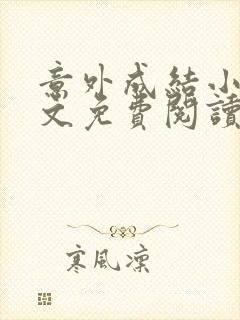 意外成結小
文免費閱讀
寒風凜